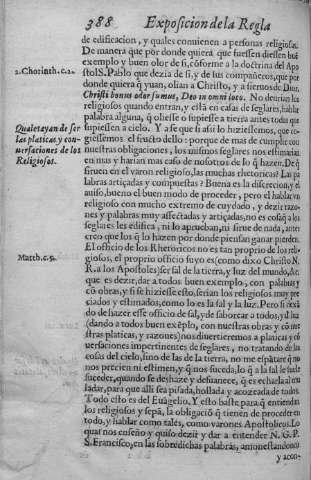 388 Exposicion de la Regla
de edificacion, y quales conuienen a personas religiosas.
De manera que por donde quiera que fuessen diessen buẽ
exemplo y buen olor de si, cõforme a la doctrina del Apo
2. Chorinth. c. 2. stol S. Pablo que dezia de si, y de sus compañeros, que por
donde quiera q̃ yuan, olian a Christo, y a sieruos de Dios.
Christi bonus odor sumus, Deo in omni loco. No deurian los
religiosos quando entran, y està en casas de seglares, hablar
Quales ayan de ser palabra alguna, q̃ oliesse o supiesse a tierra antes todas que
las platicas y con- supiessen a cielo. Y a fe que si assi lo hiziessemos, que co-
uersaciones de los giessemos el fructo dello: porque de mas de cumplir con
Religiosos. nuestras obligaciones, los mismos seglares nos estimarian
en mas y harian mas caso de nosotros de lo q̃ hazen. De q̃
siruen en el varon religioso, las muchas rhetoricas? Las pa
labras artiçadas y compuestas? Buena es la discrecion, y el
auiso, bueno el buen modo de proceder, pero el hablar vn
religioso con mucho extremo de cuydado, y dezir razo-
nes y palabras muy affectadas y artiçadas, no es cosa q̃ a los
seglares les edifica, ni lo aprueban, ni sirue de nada, antes
creo que los q̃ lo hazen por donde piensan ganar pierden.
El officio de los Rhetoricos no es tan proprio de los reli-
giosos, el proprio officio suyo es (como dixo Christo N.
Matth. c. 5. R. a los Apostoles) ser sal de la tierra, y luz del mundo, &c.
que es dezir, dar a todos buen exemplo, con palabras y
cõ obras, y si se hiziesse esto, serian los religiosos muy pre
ciados y estimados, como lo es la sal y la luz. Pero si dexã
do de hazer esse officio de sal, y de saborear a todos, y d luz
(dando a todos buen exẽplo, con nuestras obras y cõ nue
stras platicas, y razones) nos diuertiremos a platicas y cõ
uersaciones impertinentes de seglares, no tratando de las
cosas del cielo, sino de las de la tierra, no me espãtarè q̃ no
nos precien ni estimen, y q̃ nos suceda, lo q̃ a la sal le suele
suceder, quando se deshaze y desuanece, q̃ es echarla al mu
ladar, para que alli sea pisada, hollada y acozeada de todos.
Todo esto es del Euãgelio. Y esto baste para q̃ entiendan
los religiosos y sepã, la obligaciõ q̃ tienen de proceder en
todo, y hablar como tales, como varones Apostolicos. Lo
qual nos enseño y quiso dezir y dar a entender N. G. P.
S. Francisco, en las sobredichas palabras, amonestandonos
y acon-